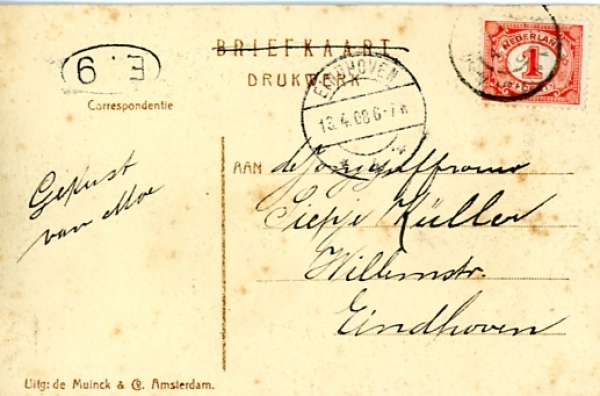 BRIEFKAART
DRUKWERK
E. 9
EINDHOVEN
13.4.08 6-7N
NEDERLAND
1
CENT
Correspondentie
Gekust
van Moe
AAN de Jongejuffrouw
Siepje Küller
Willemstr.
Eindhoven
Uitg: de Muinck & Co. Amsterdam.